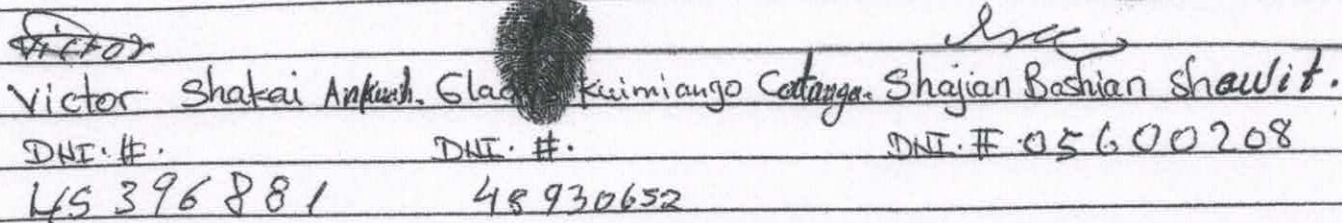 Victor
Victor Shakai Ankuash. Glad Kuimiango Cattanga. Shajian Bashian Shawit.
DNI. #. DNI. #. DNI. # 05600208
45396881 48930652